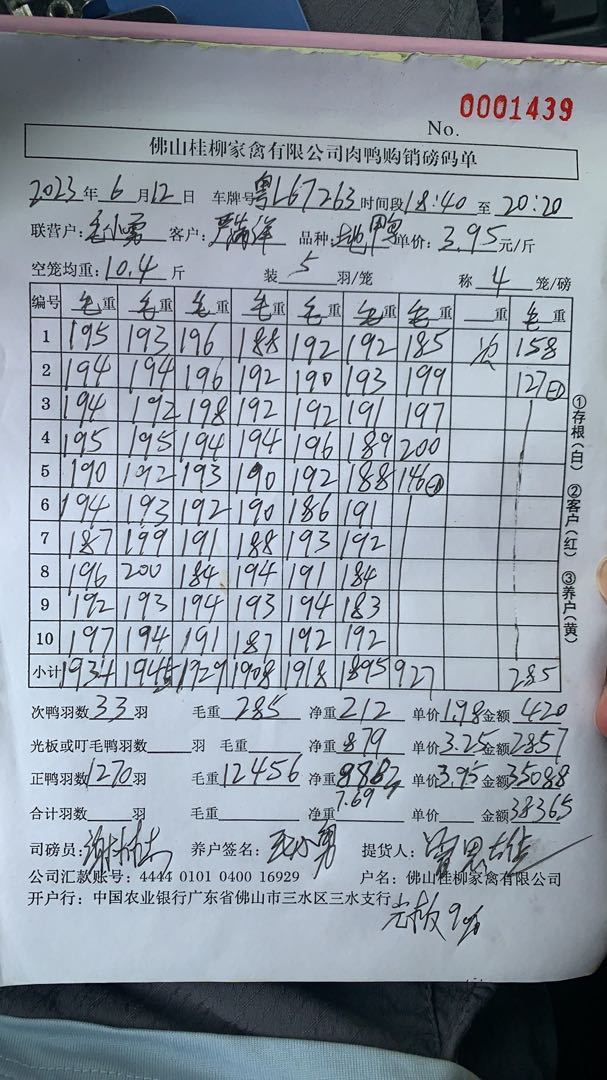 0001439
No.
佛山桂柳家禽有限公司肉鸭购销磅码单
2023年6月12日 车牌号粤L67263时间段18:40至20:20
联营户:毛小勇 客户: 品种: 单价:3.95元/斤
空笼均重:10.4斤 装5羽/笼 称4笼/磅
编号 毛重 毛重 毛重 毛重 毛重 毛重 毛重 重 毛重
1 195 193 196 188 192 192 185 次 158
2 194 194 196 192 190 193 199 127
3 194 192 198 192 192 191 197
4 195 195 194 194 196 189 200
5 190 192 193 190 192 188 146
6 194 193 192 190 186 191
7 187 199 191 188 193 192
8 196 200 184 194 191 184
9 192 193 194 193 194 183
10 197 194 191 187 192 192
小计 1934 1945 1929 1908 1918 1895 927 285
①存根(白) ②客户(红) ③养户(黄)
次鸭羽数33羽 毛重285 净重212 单价1.98金额420
光板或叮毛鸭羽数 羽 毛重 净重879 单价3.25金额2857
正鸭羽数1270羽 毛重12456 净重 单价3.95金额35088
合计羽数 羽 毛重 净重7.69 单价 金额38365
司磅员: 养户签名: 提货人:
公司汇款账号:4444 0101 0400 16929 户名:佛山桂柳家禽有限公司
开户行:中国农业银行广东省佛山市三水区三水支行
光板9%